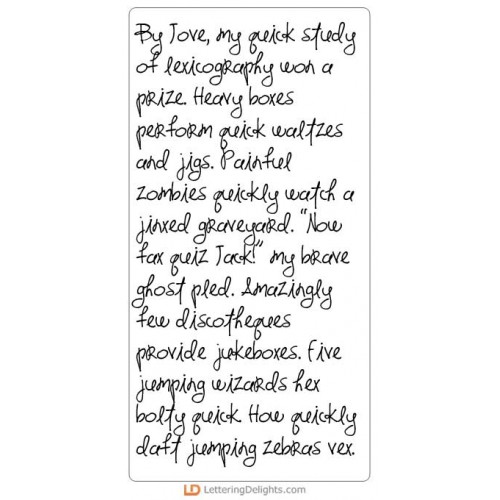 By Jove, my quick study
of lexicography won a
prize. Heavy boxes
perform quick waltzes
and jigs. Painful
zombies quickly watch a
jinxed graveyard. "Now
fax quiz Jack!" my brave
ghost pled. Amazingly
few discotheques
provide jukeboxes. Five
jumping wizards hex
bolty quick. How quickly
daft jumping zebras vex.
LD LetteringDelights.com